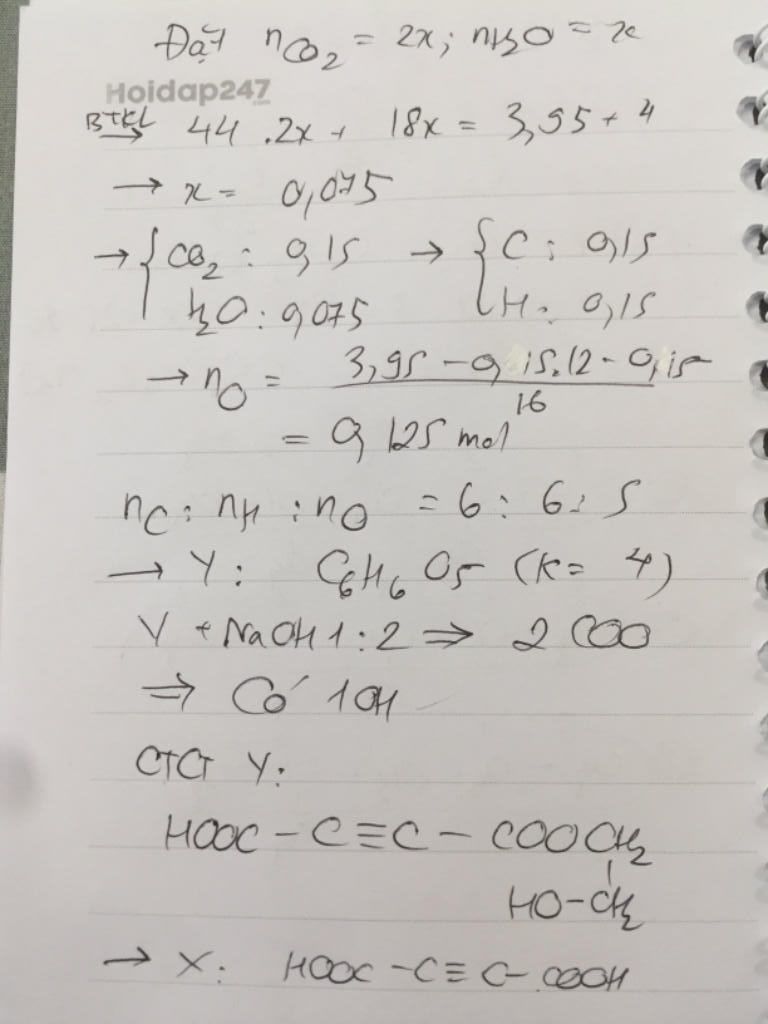 Đặt nCO₂ = 2x; nH₂O = x
Hoidap247
.com
BTKL
→ 44 .2x + 18x = 3,95 + 4
→ x = 0,075
→ { CO₂ : 0,15 → { C : 0,15
H₂O : 0,075 H : 0,15
→ nO = (3,95 - 0,15.12 - 0,15) / 16
= 0,125 mol
nC : nH : nO = 6 : 6 : 5
→ Y : C₆H₆O₅ (K = 4)
Y + NaOH 1 : 2 ⇒ 2 COO
⇒ Có 1 OH
CTCT Y :
HOOC - C ≡ C - COOCH₂
|
HO-CH₂
→ X : HOOC - C ≡ C - COOH